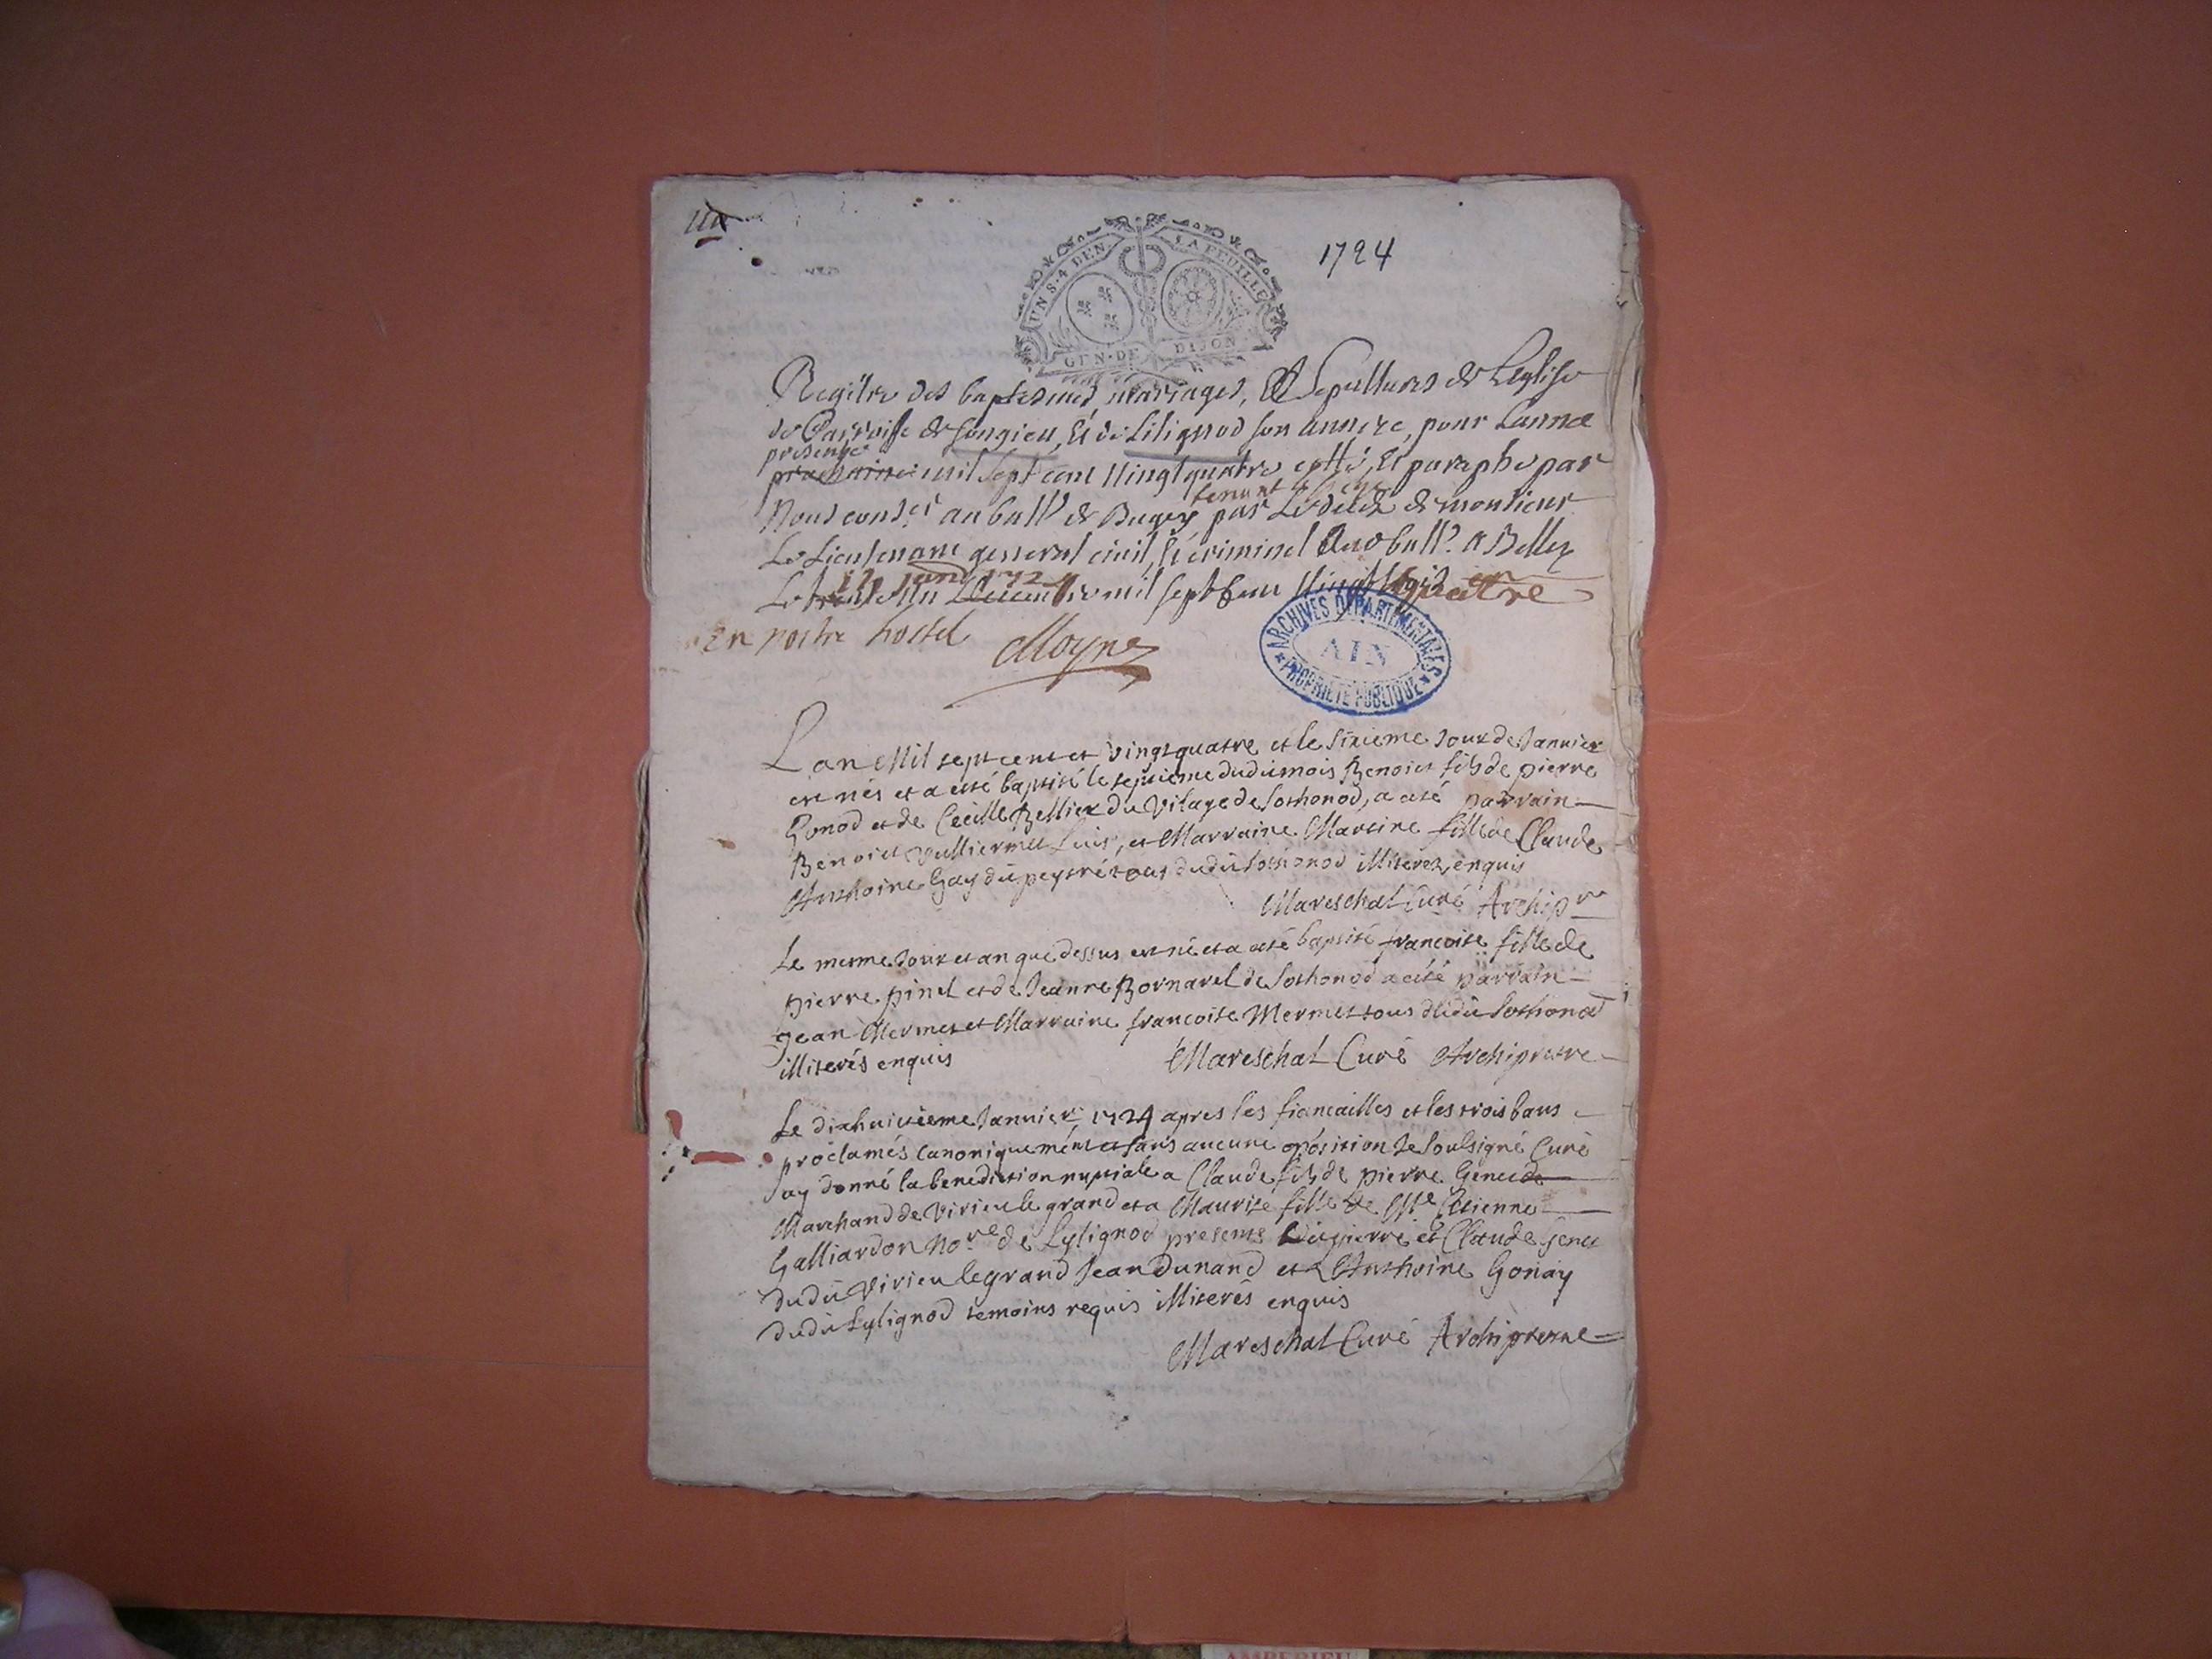 Un
1724
UN S. 4 DEN. LA FEUILLE
GEN. DE DIJON
Registre des baptesmes mariages, Et Sepultures de Leglise
de Parroisse de Songieu, Et de Lilignod son annexe, pour Lannee
presente
prochaine mil sept cent vingt quatre cotté, Et paraphe par
tenant le
Nous cons.er au baill.e de Bugey par Le deced de monsieur
Le Lieutenant general civil, Et criminel Aud baill.e a Belley
Le mil sept cent vingt quatre
En nostre hostel Moyne
ARCHIVES DEPARTEMENTALES
AIN
PROPRIETE PUBLIQUE
Lan Mil sept cent et vingt quatre et le sixieme Jour de Janvier
est nés et a esté baptisé le septieme dudit mois Benoist fils de pierre
Gonod et de Cecille Bellier du Vilage de Sothonod, a esté parrain
Benoist Vulliermet et Marraine Martine fille de Claude
Anthoine Gay du tous dudit Sothonod illiterez, enquis
Mareschal Curé Archip.re
Le mesme Jour et an que dessus est né et a esté baptisé francoise fille de
pierre pinel et de Jeanne Bornarel de Sothonod a esté parrain
Jean Mermet et Marraine francoise Mermet tous dudit Sothonod
illiterés enquis Mareschal Curé Archiprestre
Le dixhuitieme Janvier 1724 apres les fiancailles et les trois bans
proclamés Canoniquement et sans aucune oposition Je Soussigné Curé
ay donné la benediction nuptiale a Claude fils de pierre Genet de
Marchand de Virieu le grand et a Maurise fille de M.e Etienne
Galliardon No.re de Lylignod presents pierre et Claude Genet
dudit Virieu le grand Jean Dunand et Anthoine Gonay
dudit Lylignod temoins requis illiterés enquis
Mareschal Curé Archiprestre
AMBERIEU